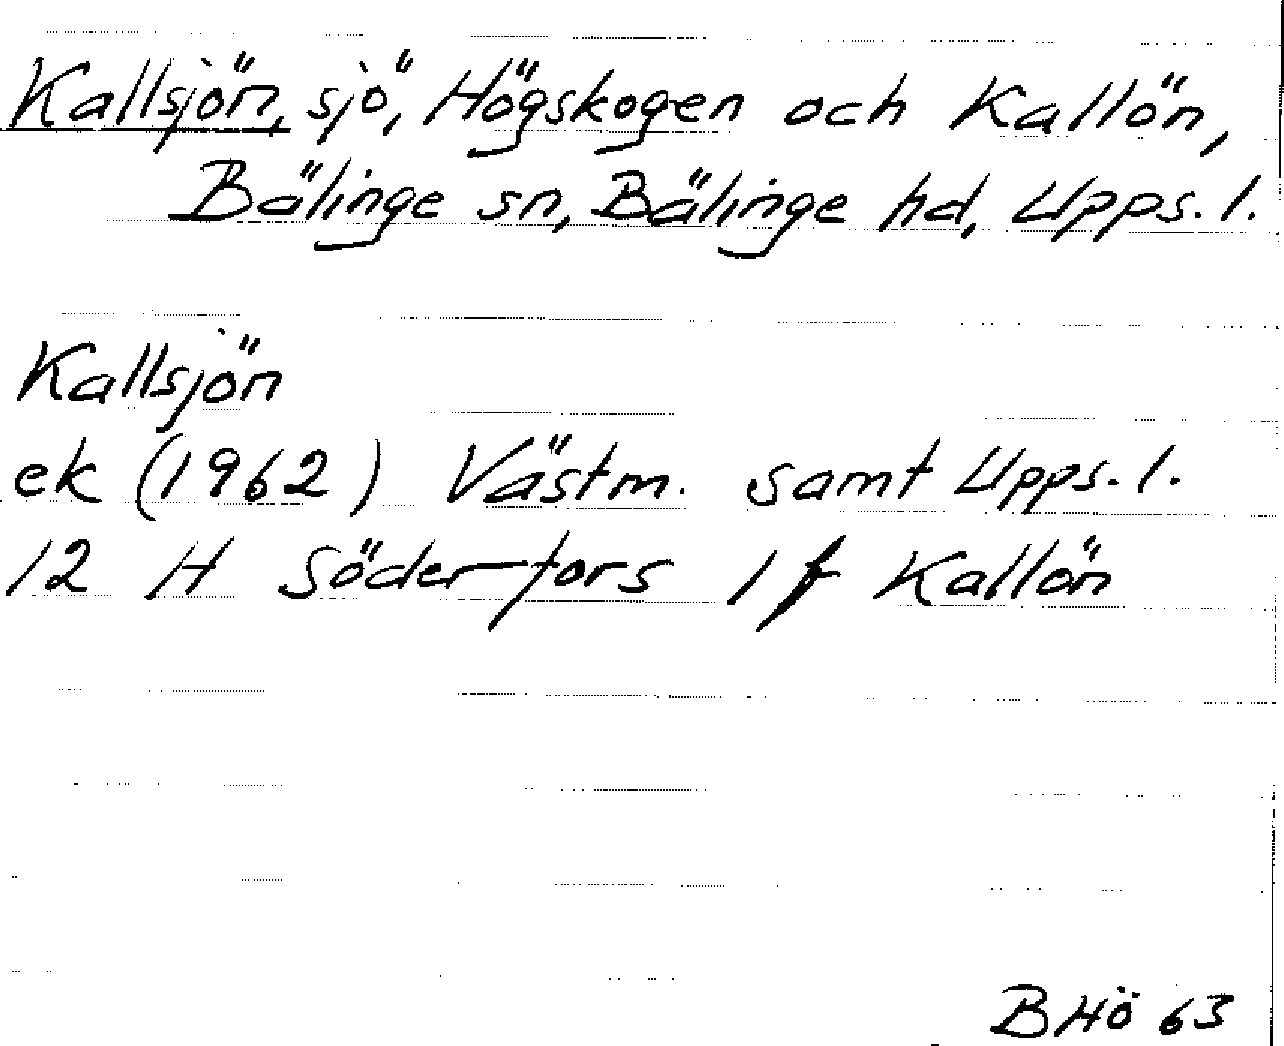 Kallsjön, sjö, Högskogen och Kallön,
Bälinge sn, Bälinge hd, Upps. l.
Kallsjön
ek (1962) Västm. samt Upps. l.
12 H Söderfors 1 f Kallön
BHö 63